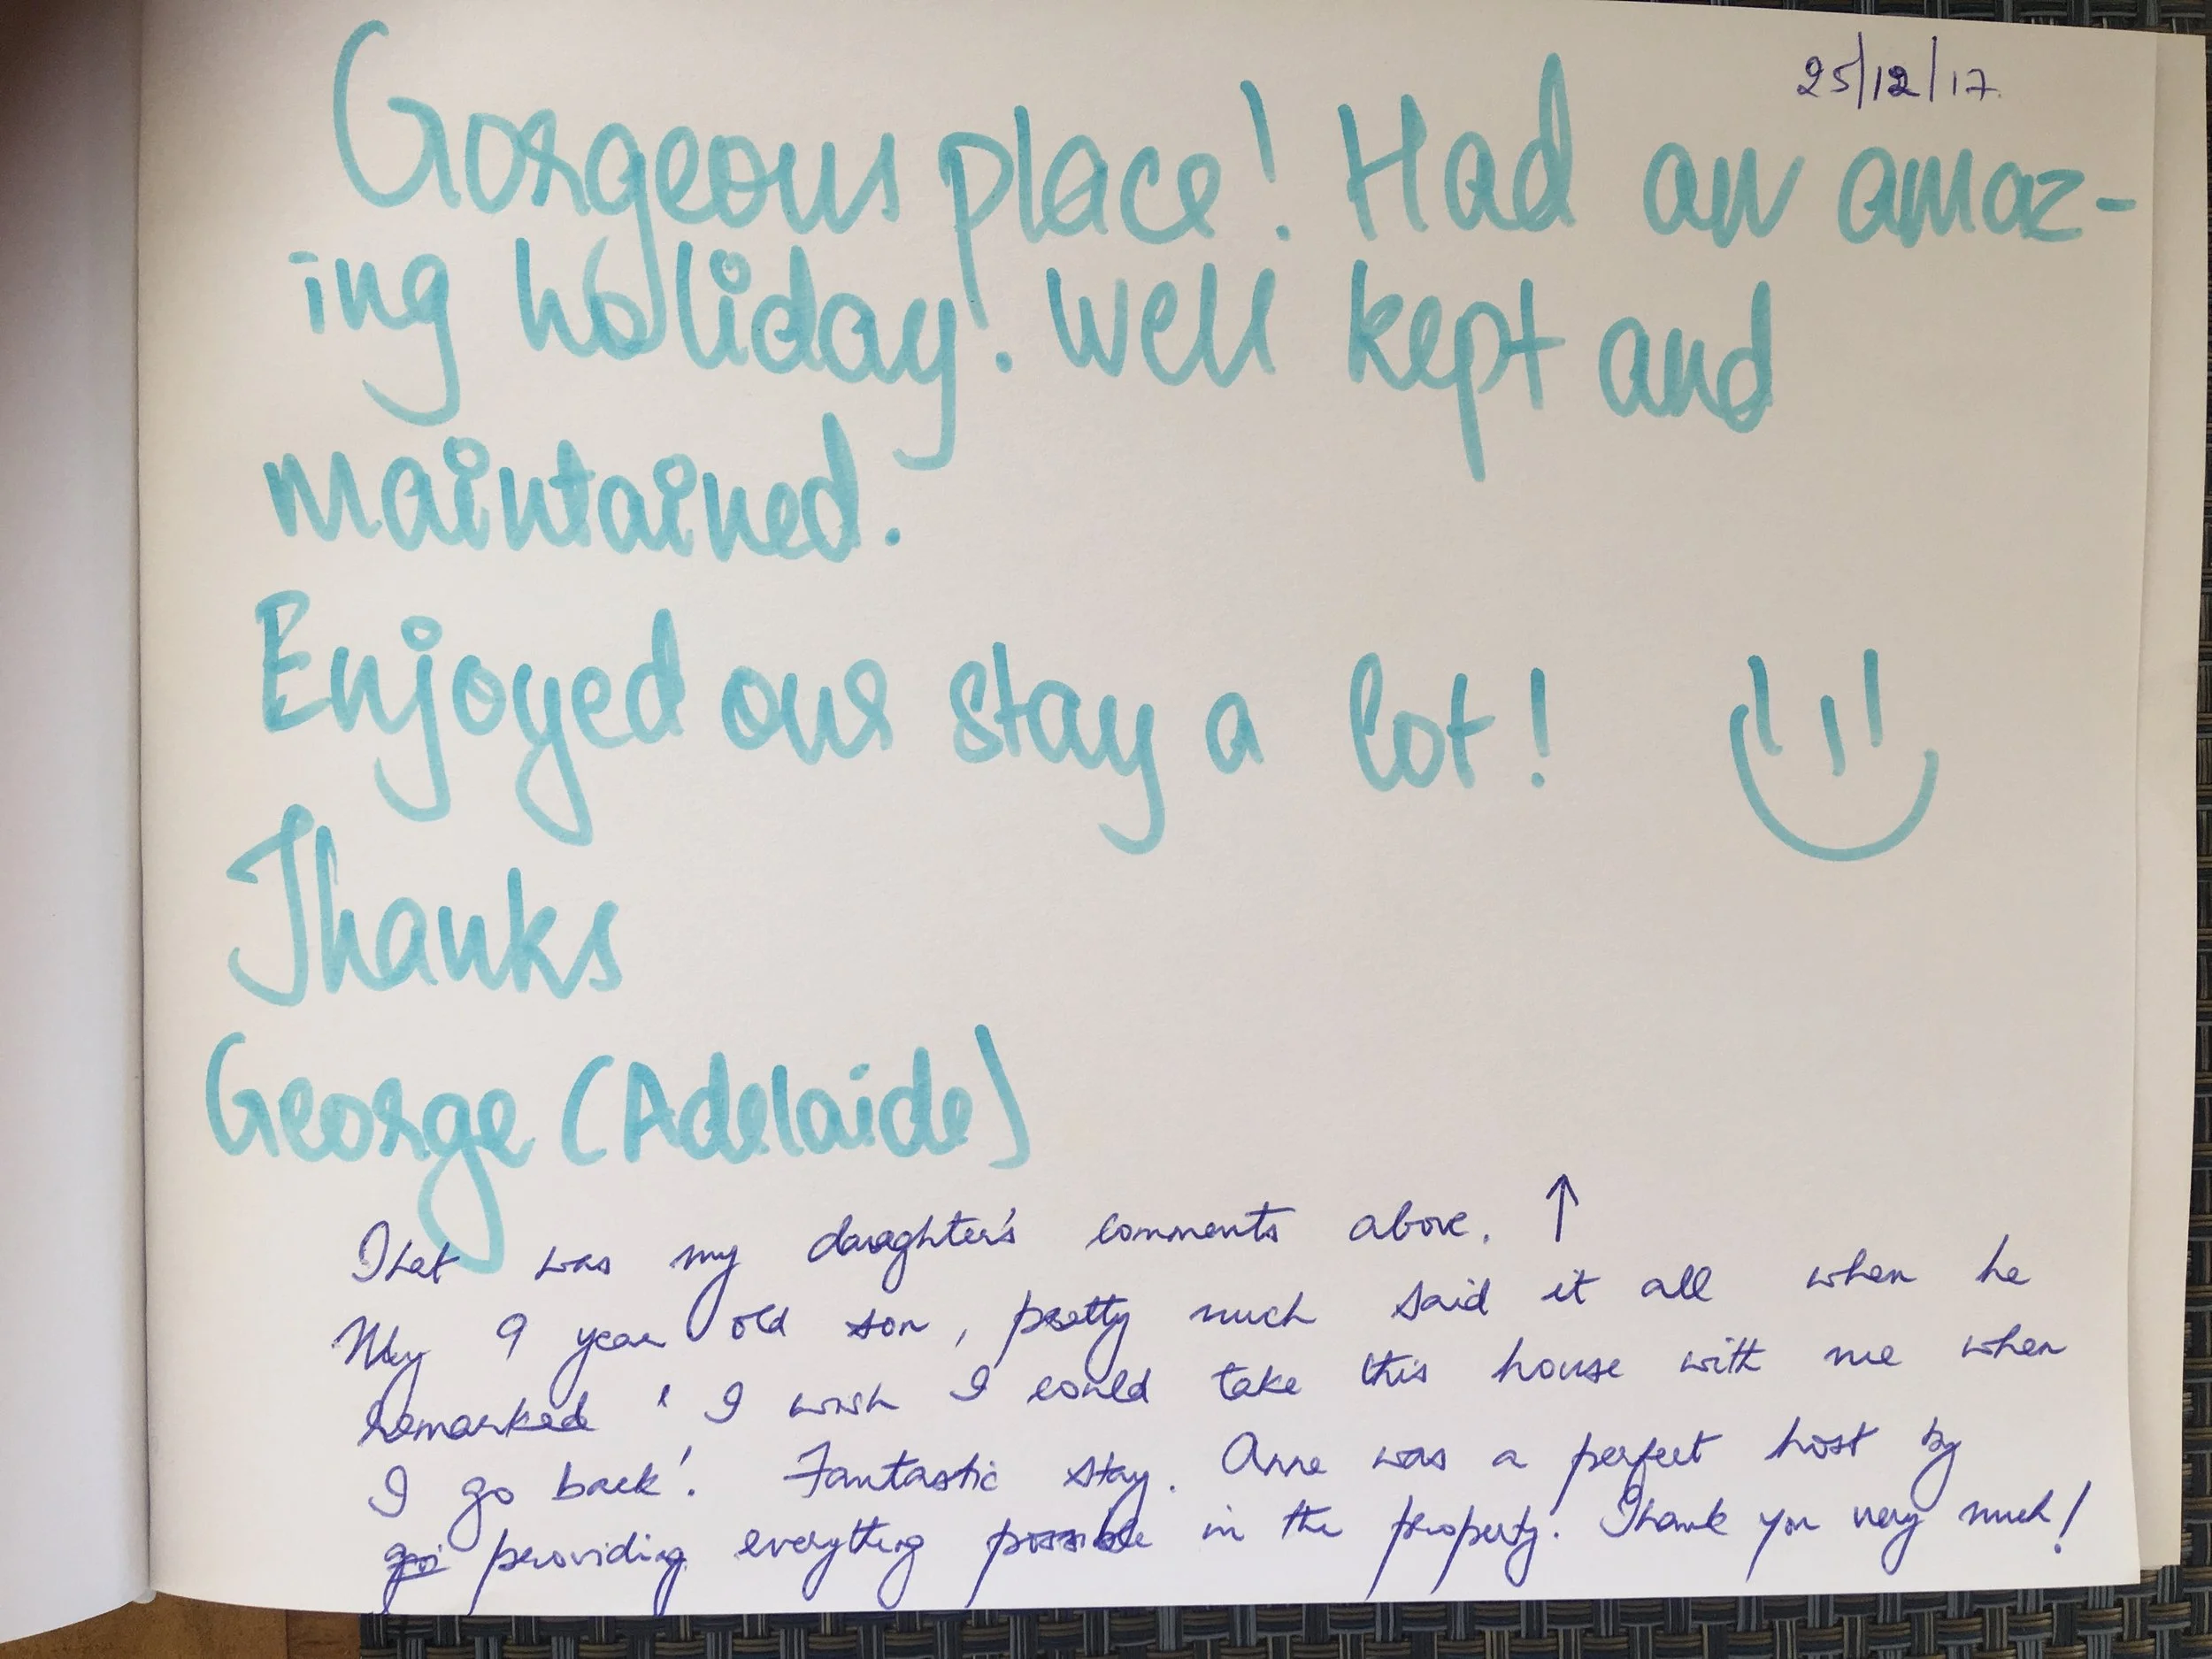 25/12/17
Gorgeous place! Had an amaz-
ing holiday! Well kept and
maintained.
Enjoyed our stay a lot!
Thanks
George (Adelaide)
That was my daughter's comments above. ↑
My 9 year old son, pretty much said it all when he
remarked ' I wish I could take this house with me when
I go back'. Fantastic stay. Anne was a perfect host by
providing everything possible in the property. Thank you very much!